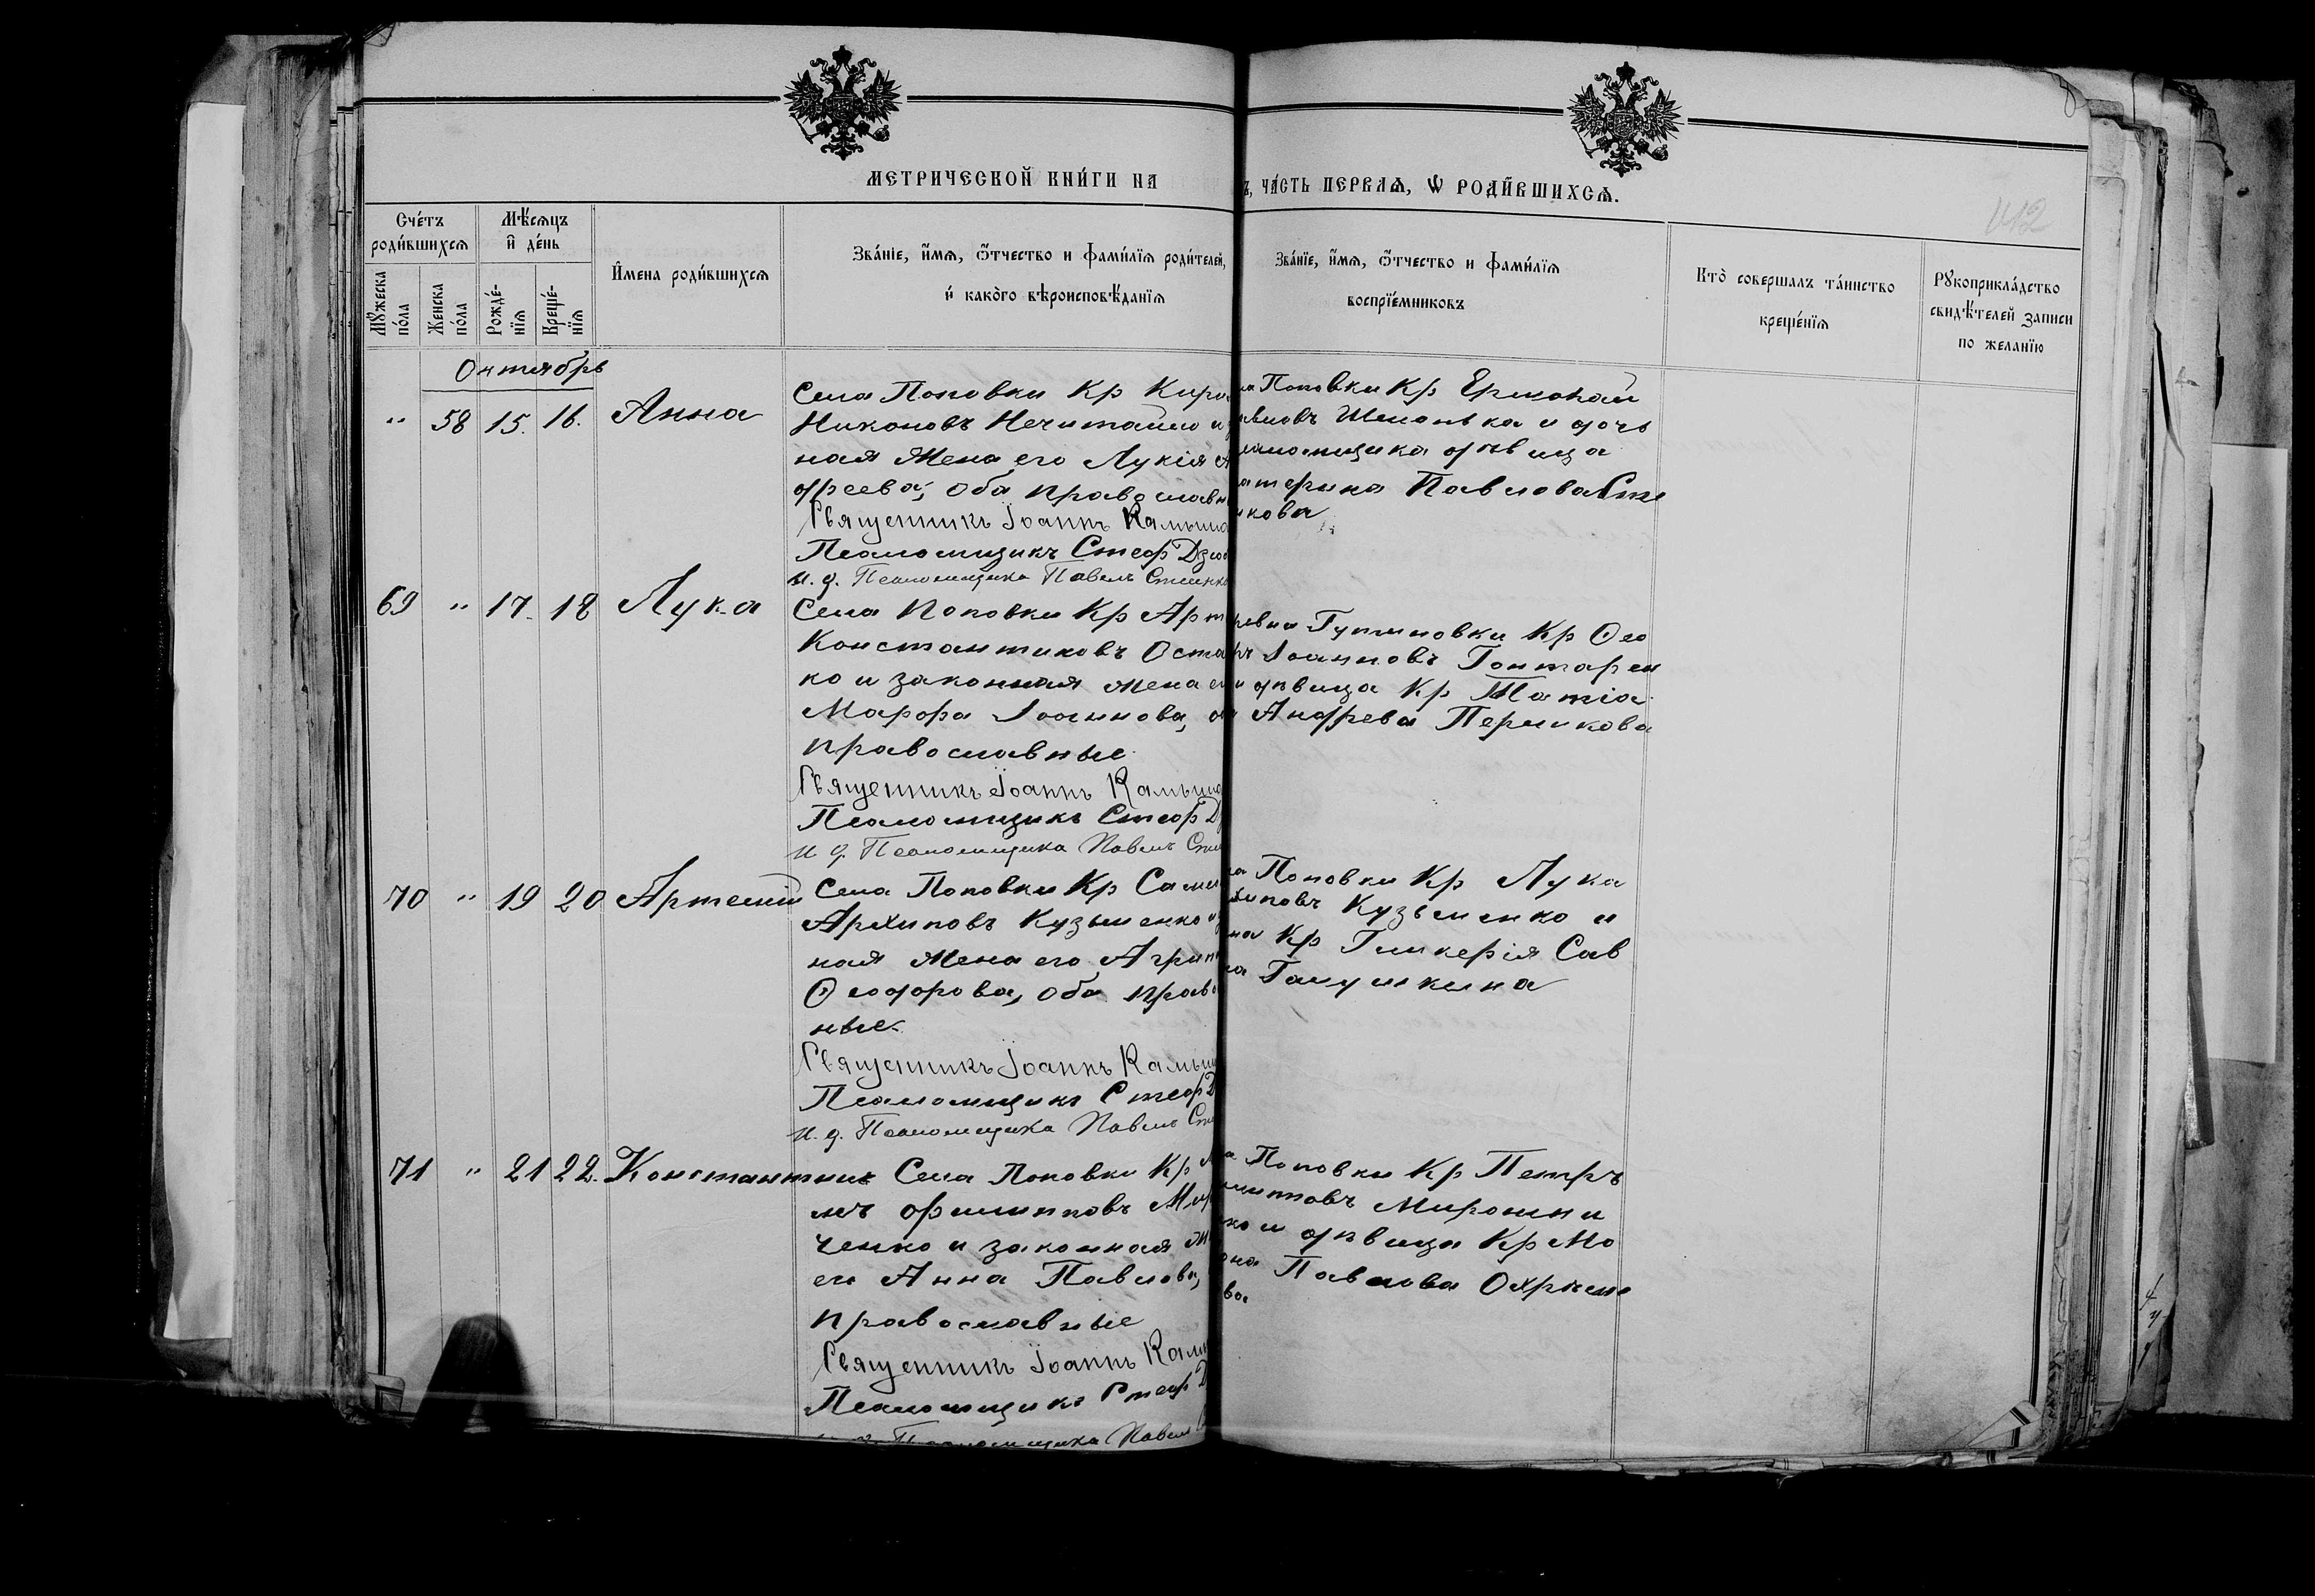 МЕТРИЧЕСКОЙ КНИ́ГИ НА
Ъ, ЧА́СТЬ ПЕРВАѦ, Ѡ РОДИ́ВШИХСѦ.
412
Сче́тъ родившихсѧ
Мѣ́сѧцъ и де́нь
Мꙋжеска по́ла
Женска по́ла
Рожде́-нїѧ
Креще́-нїѧ
И҆мена роди́вшихсѧ
Зва́нїе, и҆́мѧ, ѻ҆́тчество и фами́лїѧ роди́телей,
и како́го вѣроисповѣ́данїѧ
Зва́нїе, и҆́мѧ, ѻ҆́тчество и фами́лїѧ
воспрїе́мниковъ
Кто̀ совершалъ та́инство
креще́нїѧ
Рꙋкоприкла́дство
свидѣ́телей записи
по желанїю
Октябрь
" 58 15. 16. Анна
Села Поповки Кр Кири
Никоновъ Нечитайло и
ная жена его Лукія А
дреева, оба православн
Священникъ Іоаннъ Камыш
Псаломщикъ Стеф Дзю
и. д. Псаломщика Павелъ
ла Поповки Кр Ермолай
и дочь
псаломщика дѣвица
атерина Павлова Сте
кова
69 " 17. 18 Лука
Села Поповки Кр Арт
Константиновъ Оста
ко и законная жена ег
Марфа Іоаннова, о
православные
Священникъ Іоаннъ Камыш
Псаломщикъ Стеф Д
и д. Псаломщика Павелъ
ревни Кр Ѳео
ръ Іоанновъ Гонтарен
и дѣвица Кр Татіа
Андреева Перликова
70 " 19 20 Артемій
Села Поповки Кр Сам
Архиповъ Кузьменко и
ная жена его Агрип
Ѳеодорова, оба право
ные.
Священникъ Іоаннъ Камыш
Псаломщикъ Стеф Д
и. д. Псаломщика Павелъ
ла Поповки Кр Лука
хиповъ Кузьменко и
на Кр Гликерія Сав
на Галушкина
71 " 21 22. Константинъ
Села Поповки Кр
лъ Филипповъ Мир
ченко и законная ж
его Анна Павлова,
православные
Священникъ Іоаннъ Кам
Псаломщикъ Стеф Д
и. д. Псаломщика Павелъ
ла Поповки Кр Петръ
липповъ Мирошни
ко и дѣвица Кр Мо
она Павлова Охрѣме
ва